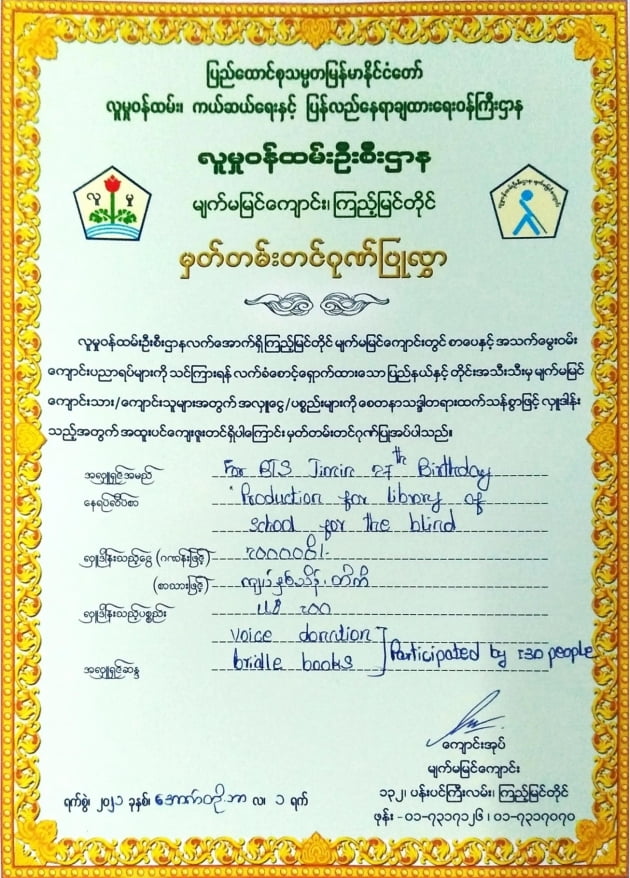 ပြည်ထောင်စုသမ္မတမြန်မာနိုင်ငံတော်
လူမှုဝန်ထမ်း၊ ကယ်ဆယ်ရေးနှင့် ပြန်လည်နေရာချထားရေးဝန်ကြီးဌာန
လူမှုဝန်ထမ်းဦးစီးဌာန
မျက်မမြင်ကျောင်း၊ ကြည့်မြင်တိုင်
လူ မှု
မှတ်တမ်းတင်ဂုဏ်ပြုလွှာ
လူမှုဝန်ထမ်းဦးစီးဌာနလက်အောက်ရှိကြည့်မြင်တိုင် မျက်မမြင်ကျောင်းတွင် စာပေနှင့် အသက်မွေးဝမ်း
ကျောင်းပညာရပ်များကို သင်ကြားရန် လက်ခံစောင့်ရှောက်ထားသော ပြည်နယ်နှင့် တိုင်းအသီးသီးမှ မျက်မမြင်
ကျောင်းသား/ကျောင်းသူများအတွက် အလှူငွေ/ပစ္စည်းများကို စေတနာသဒ္ဓါတရားထက်သန်စွာဖြင့် လှူဒါန်း
သည့်အတွက် အထူးပင်ကျေးဇူးတင်ရှိပါကြောင်း မှတ်တမ်းတင်ဂုဏ်ပြုအပ်ပါသည်။
အလှူရှင်အမည် For BTS Jimin 27th Birthday
နေရပ်လိပ်စာ "Production for library of
school for the blind
လှူဒါန်းသည့်ငွေ (ဂဏန်းဖြင့်) ၇၀၀၀၀၀ိ/-
(စာသားဖြင့်) ကျပ်ခုနှစ်သိန်း တိတိ
လှူဒါန်းသည့်ပစ္စည်း ၂၀၀
voice donation
အလှူရှင်ဆန္ဒ brialle books ] Participated by 130 people
ကျောင်းအုပ်
မျက်မမြင်ကျောင်း
ရက်စွဲ၊ ၂၀၂၁ ခုနှစ်၊ အောက်တိုဘာ လ၊ ၁ ရက်
၁၃၂၊ ပန်းပင်ကြီးလမ်း၊ ကြည့်မြင်တိုင်
ဖုန်း - ၀၁-၇၃၁၇၁၂၆ ၊ ၀၁-၇၃၁၇၀၇၀